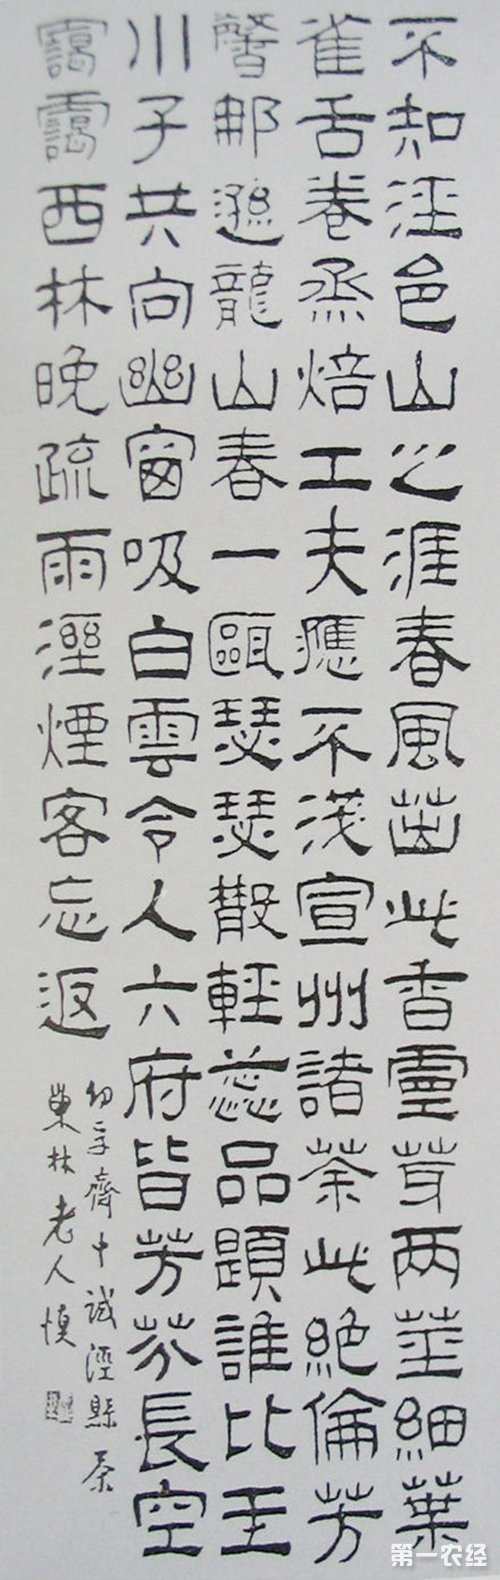 不知涇邑山之涯春風茁此香靈芽两莖細葉
雀舌卷烝焙工夫應不淺宣州諸茶此絕倫芳
馨那遜龍山春一甌瑟瑟散輕蕊品題誰比玉
川子共向幽窗吸白雲令人六府皆芳芬長空
靄靄西林晚疏雨溼煙客忘返
幼孚齋中試涇縣茶
巢林老人慎
第一农经